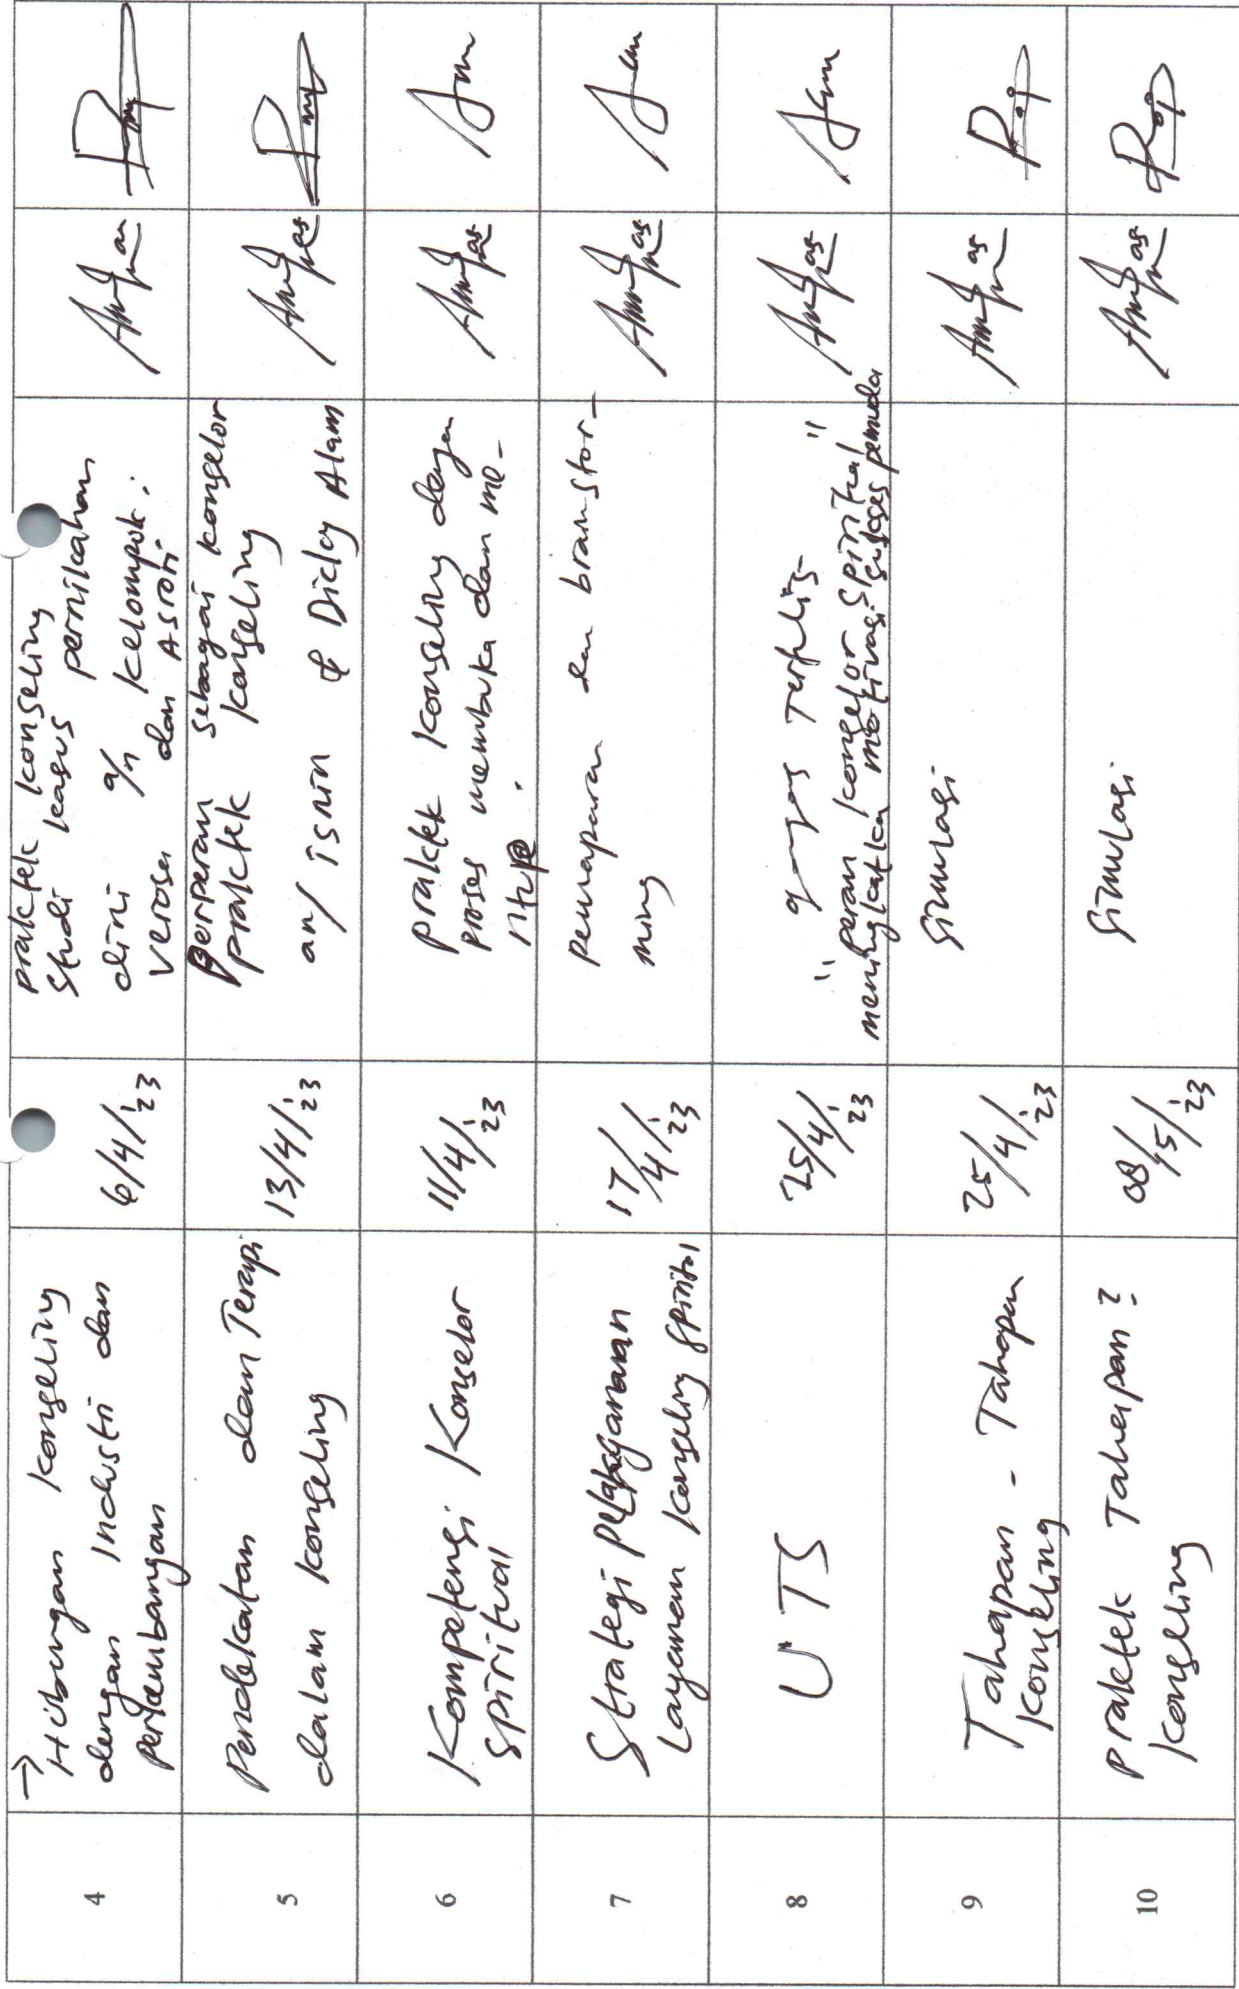 4
→ Hubungan Konseling
dengan Industri dan
perkembangan
6/4/'23
praktek konseling
studi kasus pernikahan
dini a/n kelompok :
Verosa dan Asrori
5
Pendekatan dan Terapi
dalam konseling
13/4/'23
Berperan sebagai konselor
praktek konseling
an/ isnin & Dicky Alam
6
Kompetensi Konselor
Spiritual
11/4/'23
praktek konseling dengan
proses membuka dan me-
nutup.
7
Strategi pelaksanaan
Layanan konseling spiritual
17/4/'23
pemaparan dan brainstor-
ming
8
UTS
25/4/'23
Tertulis
" peran konselor spiritual "
meningkatkan motivasi sukses pemuda
9
Tahapan - Tahapan
konseling
25/4/'23
Simulasi
10
praktek Tahapan2
konseling
08/5/'23
Simulasi